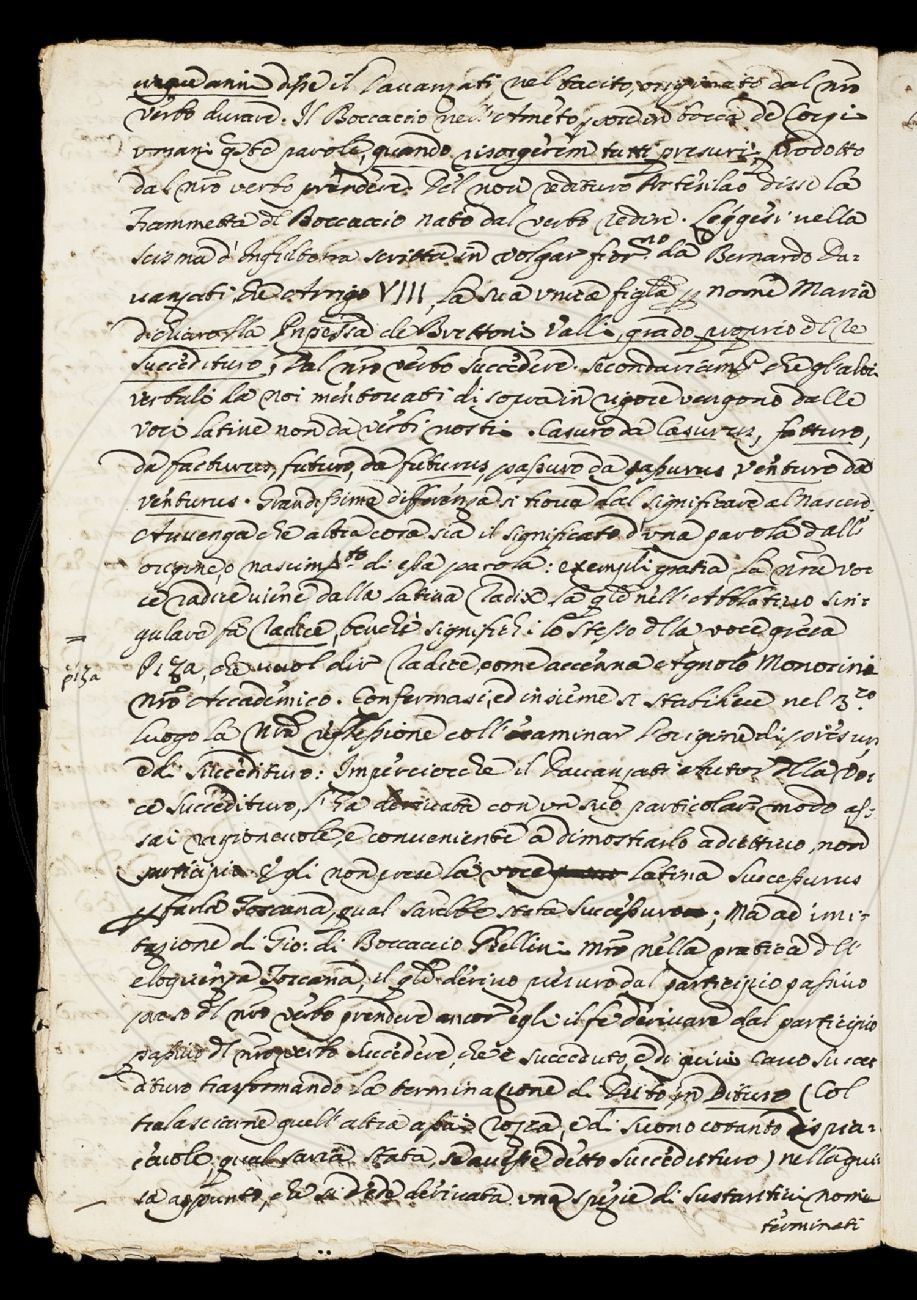 disse il Davanzati nel tacito, originato dal nrō
verbo durare. Il Boccaccio nell'Ameto, pose in bocca de Corpi
umani q̄ste parole, quando risorgerem tutti presuri, prodotto
dal nrō verbo prendere. Del non redituro Protesilao disse la
Fiammetta dl Boccaccio nato dal verbo redire. Leggesi nella
Scisma d'Inghilterra scritta in volgar fiorno da Bernardo Da-
vanzati che Arrigo VIII, la sua unica figlia nome Maria
dichiarolla Inpēssa de Brettoni Valli, grado proprio dl Re
Succedituro, Dal nrō verbo Succedere. Secondariamte che gl'altri
verbali da noi mentovati di sopra in rigore vengono dalle
voci latine non da verbi nostri. Casuro da Casurus, fatturo,
da facturus, futuro, da futurus, passuro da passurus, venturo da
venturus. Grandissima differenza si trova dal significare al nascere
Avvenga che altra cosa sia il significato d'una parola dall'
origine, o nascimto di essa parola: exempli gratia la nrā vo-
ce radice viene dalla latina Radix la qle nell'Ablativo sin-
gulare fà radice, benche significhi lo stesso dlla voce greca
=
ρίζα
Ρίζα, che vuol dir radice, come accenna Agnolo Monosini
nrō Accademico. Confermasi, ed insieme si stabilisce nel 3.zo
luogo la nrā riflessione coll'esaminar l'origine di presuri
e di Succedituro: Imperciocche il Davanzati Autor dlla vo-
ce Succedituro, l'hà derivata con un suo particolar modo as-
sai ragionevole, e conveniente a dimostrarlo adiettivo, non
participio. Egli non prese la voce latina Successurus
p farla Toscana, qual sarebbe stata Successuro; Ma ad imi-
tazione di Gio: di Boccaccio Chellini Mrō nella pratica dll'
eloquenza Toscana, il qle derivo presuro dal participio passivo
preso dl nrō verbo prendere ancor egli il fe derivare dal participio
passivo dl nrō verbo Succedere, che è Succeduto, e di quivi cavò Succe
dituro trasformando la terminazione di Duto, in Dituro (Col
tralasciarne quell'altra assai rozza, e di suono cotanto dispia-
cevole, qual saria stata, se avesse detto Succeduturo) nella gui
sa appunto, che si vede derivata una spezie di sustantivi nomi
terminati